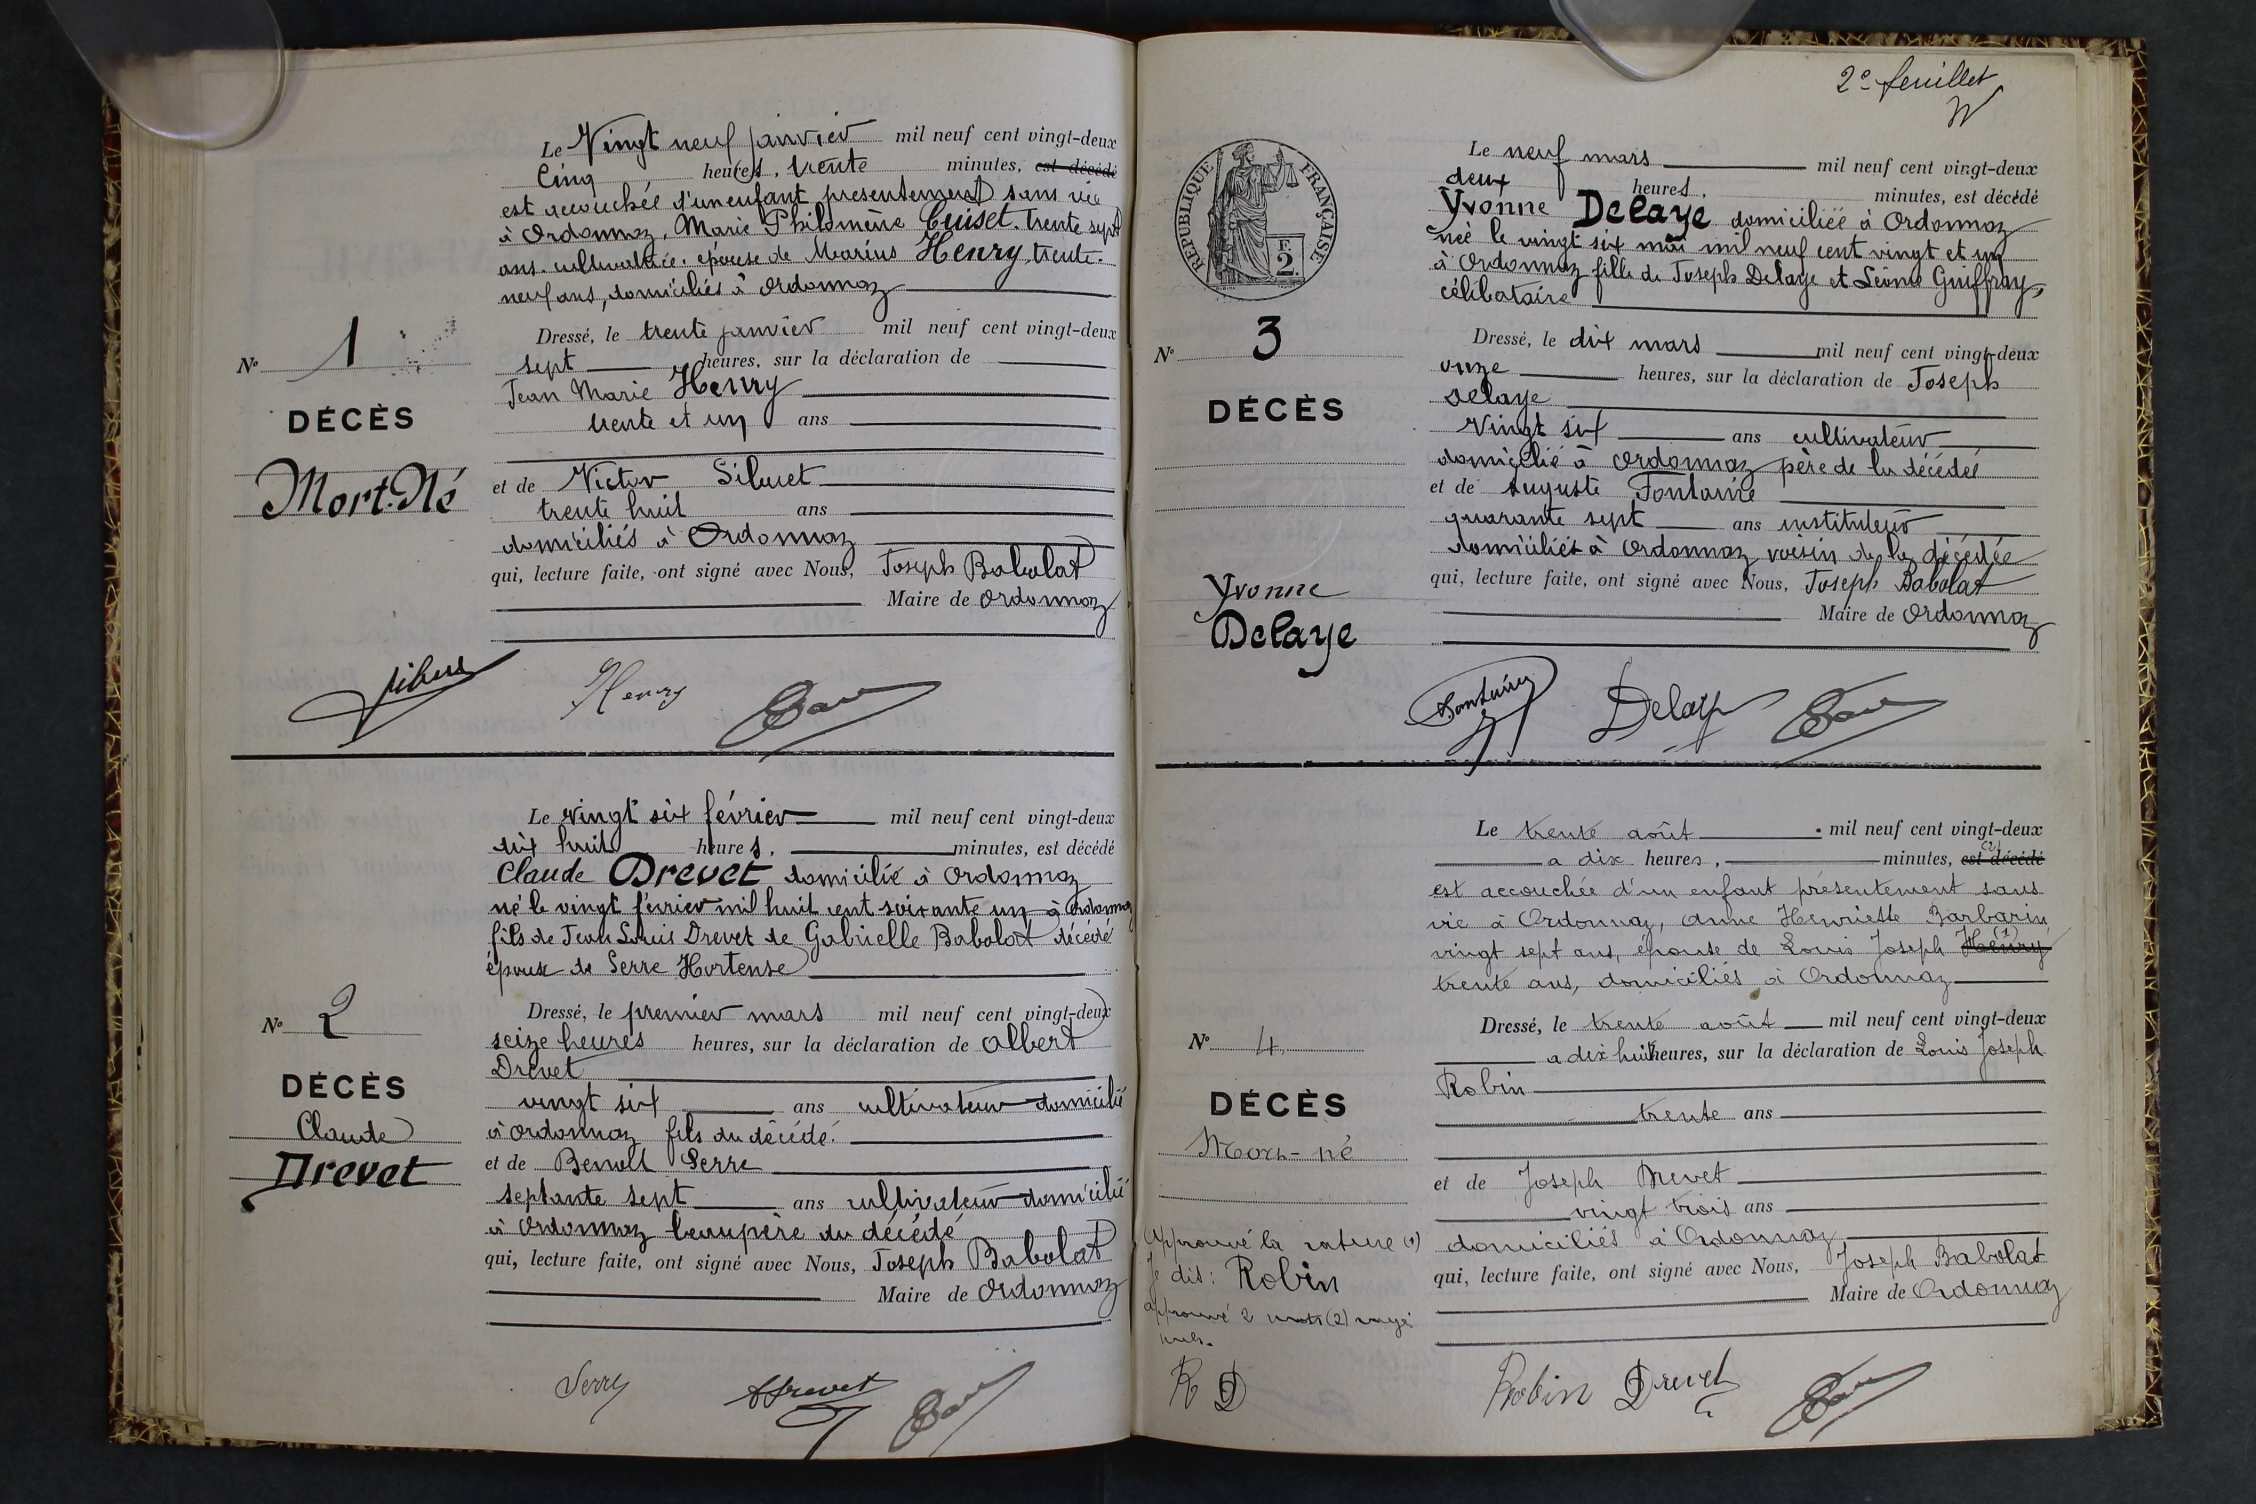 Le Vingt neuf janvier mil neuf cent vingt-deux
Cinq heures, trente minutes, est décédé
est accouchée d'un enfant presentement sans vie
à Ordonnaz, Marie Philomène Cuiset, trente sept
ans. cultivatrice. épouse de Marius Henry, trente-
neuf ans, domiciliés à Ordonnaz
Dressé, le trente janvier mil neuf cent vingt-deux
sept heures, sur la déclaration de
Jean Marie Henry
trente et un ans
et de Victor Siluet
trente huit ans
domiciliés à Ordonnaz
qui, lecture faite, ont signé avec Nous, Joseph Babolat
Maire de Ordonnaz
No 1
DÉCÈS
Mort-Né
Henry
Le vingt six février mil neuf cent vingt-deux
dix huit heures, minutes, est décédé
Claude Drevet domicilié à Ordonnaz
né le vingt février mil huit cent soixante un à Ordonnaz
fils de Jean Louis Drevet de Gabrielle Babolat décédé
époux de Serre Hortense
Dressé, le premier mars mil neuf cent vingt-deux
seize heures heures, sur la déclaration de Albert
Drevet
vingt six ans cultivateur domicilié
à Ordonnaz fils du décédé.
et de Benoit Serre
septante sept ans cultivateur domicilié
à Ordonnaz beaupère du décédé
qui, lecture faite, ont signé avec Nous, Joseph Babolat
Maire de Ordonnaz
No 2
DÉCÈS
Claude
Drevet
Serre
Drevet
2e feuillet
RÉPUBLIQUE FRANÇAISE
F.
2
Le neuf mars mil neuf cent vingt-deux
deux heures, minutes, est décédé
Yvonne Delaye domiciliée à Ordonnaz
née le vingt six mai mil neuf cent vingt et un
à Ordonnaz fille de Joseph Delaye et Léonie Guiffray,
célibataire
Dressé, le dix mars mil neuf cent vingt-deux
onze heures, sur la déclaration de Joseph
Delaye
Vingt six ans cultivateur
domicilié à Ordonnaz père de la décédée
et de Auguste Fontaine
quarante sept ans instituteur
domiciliés à Ordonnaz voisin de la décédée
qui, lecture faite, ont signé avec Nous, Joseph Babolat
Maire de Ordonnaz
No 3
DÉCÈS
Yvonne
Delaye
Fontaine Delaye
Le trente août mil neuf cent vingt-deux
a dix heures, minutes, est décédé (2)
est accouchée d'un enfant présentement sans
vie à Ordonnaz, Anne Henriette Barbarin,
vingt sept ans, épouse de Louis Joseph Henry (1)
trente ans, domiciliés à Ordonnaz
Dressé, le trente août mil neuf cent vingt-deux
a dix huit heures, sur la déclaration de Louis Joseph
Robin
trente ans
et de Joseph Drevet
vingt trois ans
domiciliés à Ordonnaz
qui, lecture faite, ont signé avec Nous, Joseph Babolat
Maire de Ordonnaz
No 4
DÉCÈS
Mort-né
Approuvé la rature (1)
Je dis: Robin
approuvé 2 mots (2) rayé
nuls.
R D
Robin Drevet